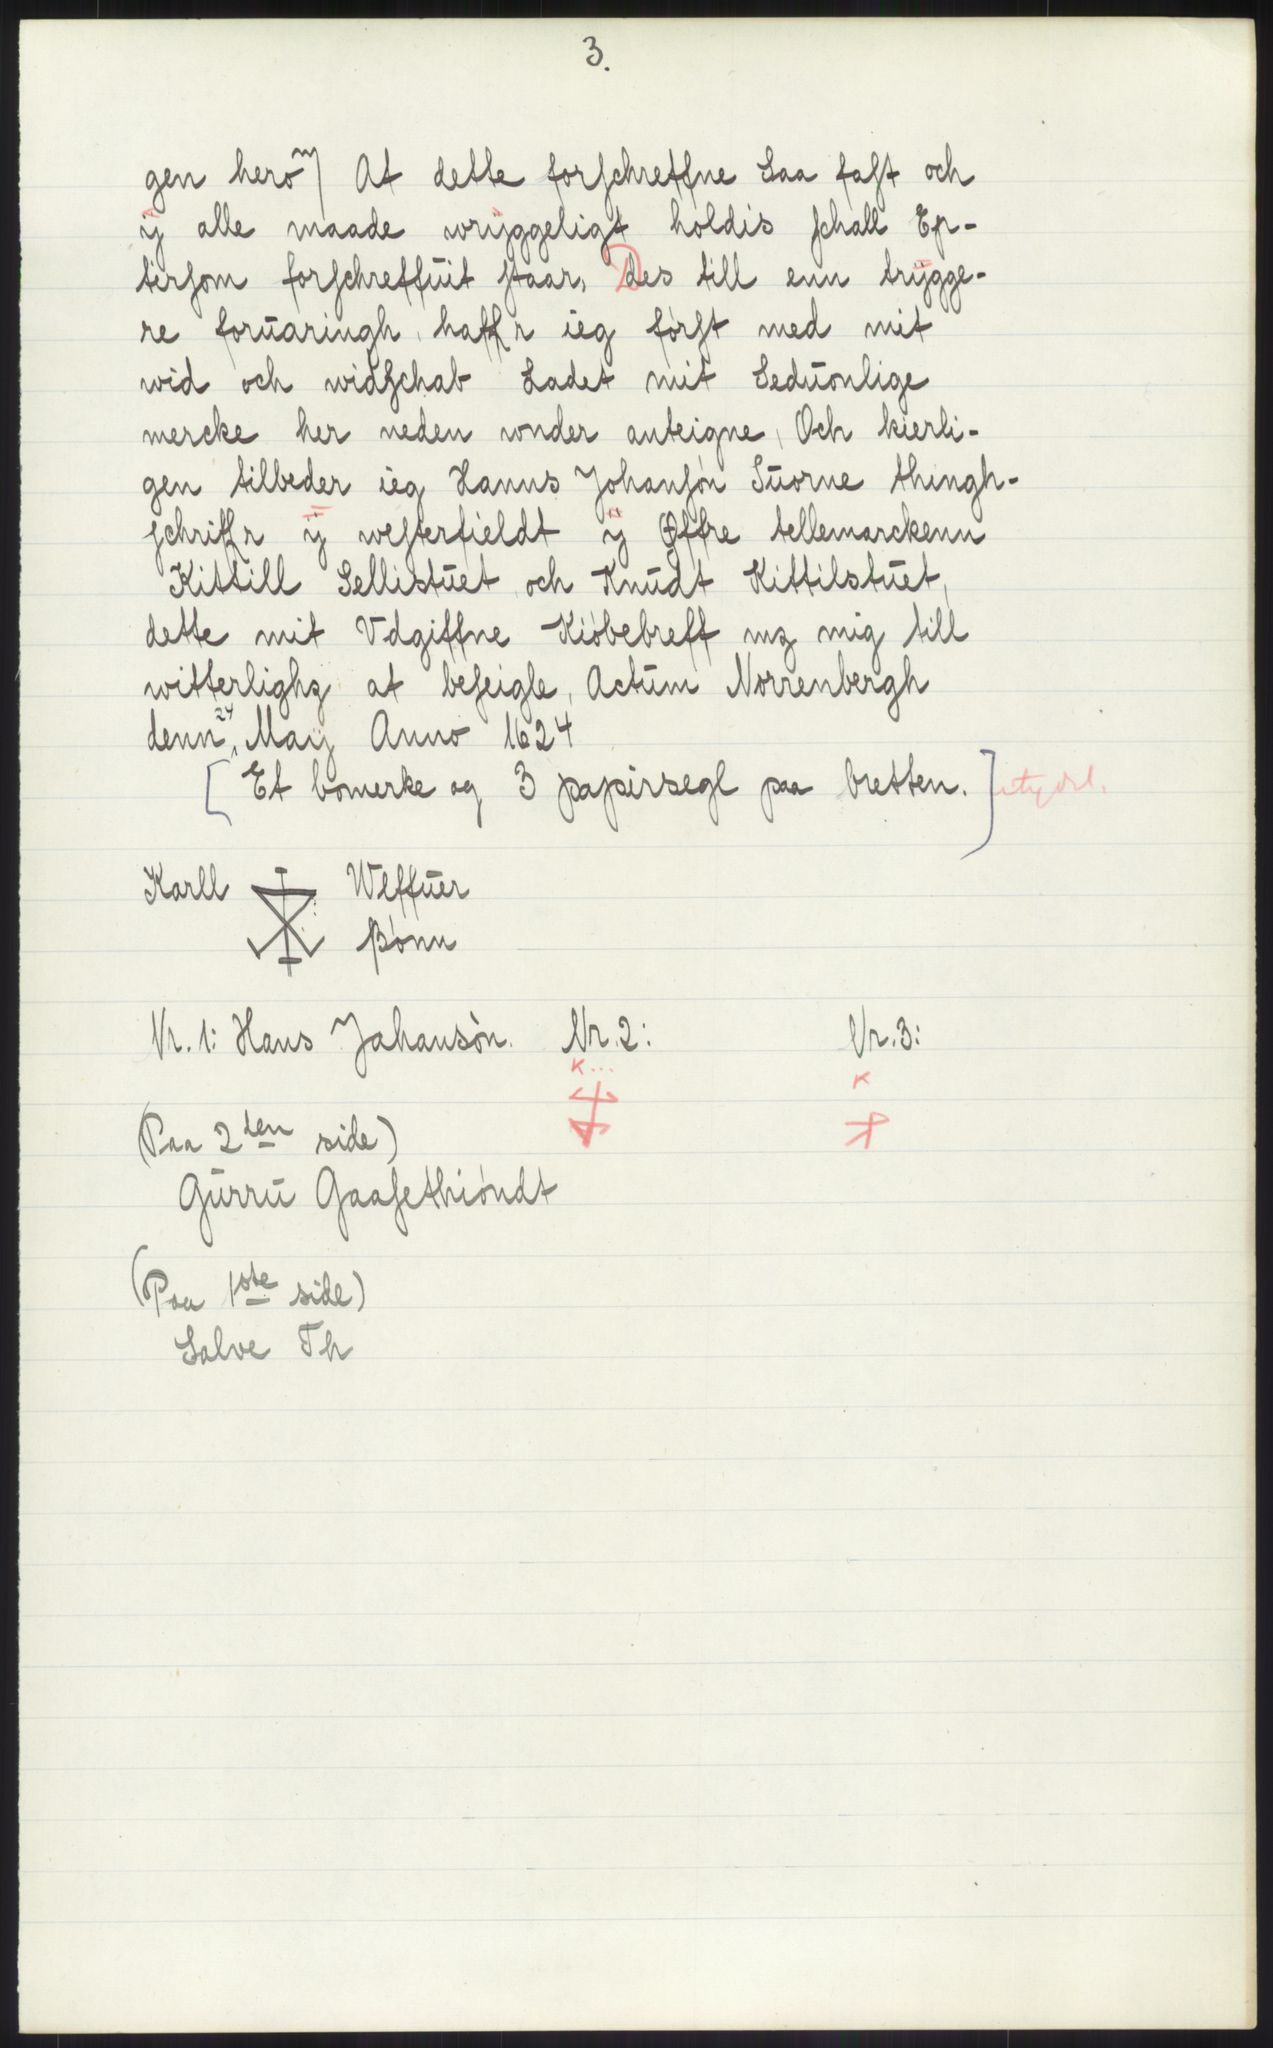 3.
gen herom/ At dette forschreffne Saa fast och
ÿ alle maade wrÿggeligt holdis schall Ep-
tersom forschreffuit staar, Des till enn trÿgge-
re foruaringh, haffr ieg først med mit
wid och widschab Ladet mit Seduonlige
mercke her neden wnder anteigne, Och kierli-
gen tilbeder ieg Hanns Johansøn Suorne thingh-
schriffr ÿ westerfieldt ÿ Øffre tellemarckenn
Kittill Sellistuet och Knudt Kittilstuet,
dette mit Vdgiffne Kiøbebreff mz mig till
witterlighz at beseigle, Actum Norrenbergh
denn 24 Maij Anno 1624
[Et bomerke og 3 papirsegl paa bretten.]
Karll Wlffuer
Bønn
Nr. 1: Hans Jahansøn. Nr. 2: Nr. 3:
K... K
(Paa 2den side)
Gurru Gaasethiøndt
(Paa 1ste side)
Salve Th